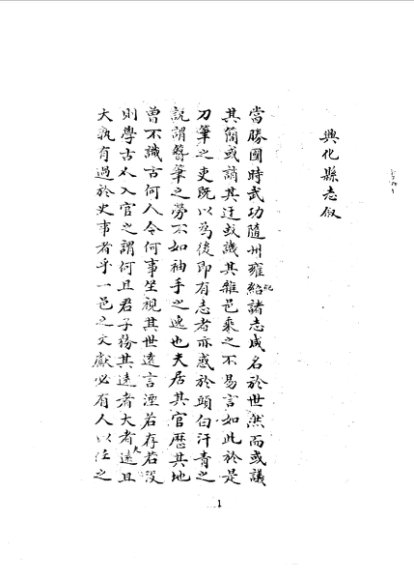 興化縣志敘
當勝國時武功隨州雍紀諸志成名於世然而或議
其簡或誚其迂或譏其雜邑乘之不易言如此於是
刀筆之吏既以為後即有志者亦惑於頭白汗青之
說謂簪筆之勞不如袖手之逸也夫居其官歷其地
曾不識古何人今何事坐視其世遠言湮若存若沒
則學古入官之謂何且君子務其遠者大者遠且
大孰有過於史事者乎一邑之文獻必有人以任之
1